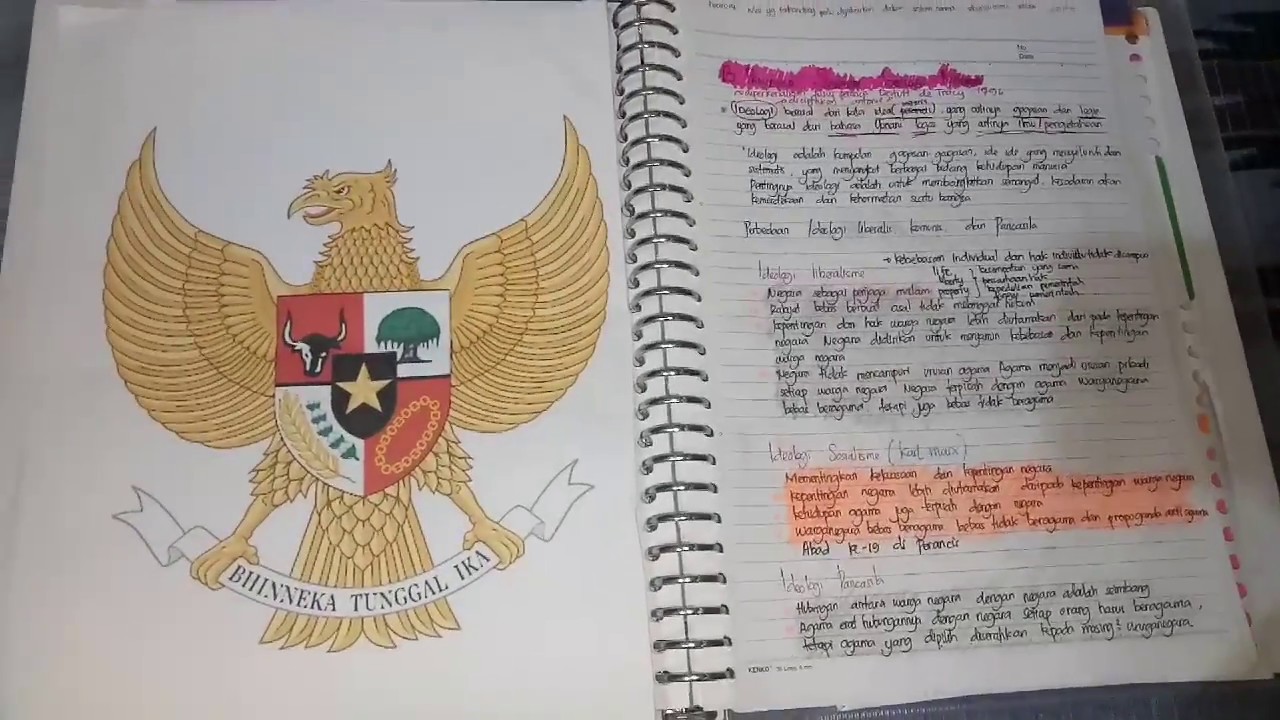 BHINNEKA TUNGGAL IKA
No
Date
diperkenalkan pada Destutt de Tracy 1796
* Ideologi berasal dari kata idea yang artinya gagasan dan logie
yang berasal dari bahasa Yunani logos yang artinya Ilmu/pengetahuan
*Ideologi adalah kumpulan gagasan-gagasan, ide ide yang menyeluruh dan
sistematis, yang menyangkut berbagai bidang kehidupan manusia
Pentingnya Ideologi adalah untuk membangkitkan semangat, kesadaran akan
kemerdekaan dan kehormatan suatu bangsa
Perbedaan Ideologi liberalis komunis dan Pancasila
→ kebebasan Individual dan hak individu tidak dicampuri
Ideologi liberalisme
life
liberty
property
persamaan hak
kepedulian pemerintah
fungsi pemerintah
Negara sebagai penjaga malam
Rakyat bebas berbuat asal tidak melanggar hukum
kepentingan dan hak warga negara lebih diutamakan dari pada kepentingan
negara Negara didirikan untuk menjamin kebebasan dan kepentingan
negara
Negara tidak mencampuri urusan agama Agama menjadi urusan pribadi
setiap warga negara Negara terpisah dengan agama Warganegara
bebas beragama, tetapi juga bebas tidak beragama
Ideologi Sosialisme (karl marx)
Mementingkan kekuasaan dan kepentingan negara
kepentingan negara lebih diutamakan daripada kepentingan warga negara
kehidupan agama juga terpisah dengan negara
warganegara bebas beragama bebas tidak beragama dan propaganda anti agama
Abad ke-19 di Perancis
Ideologi Pancasila
Hubungan antara warga negara dengan negara adalah seimbang
Agama erat hubungannya dengan negara setiap orang harus beragama,
tetapi agama yang dipilih diserahkan kepada masing² warganegara.
KENKO